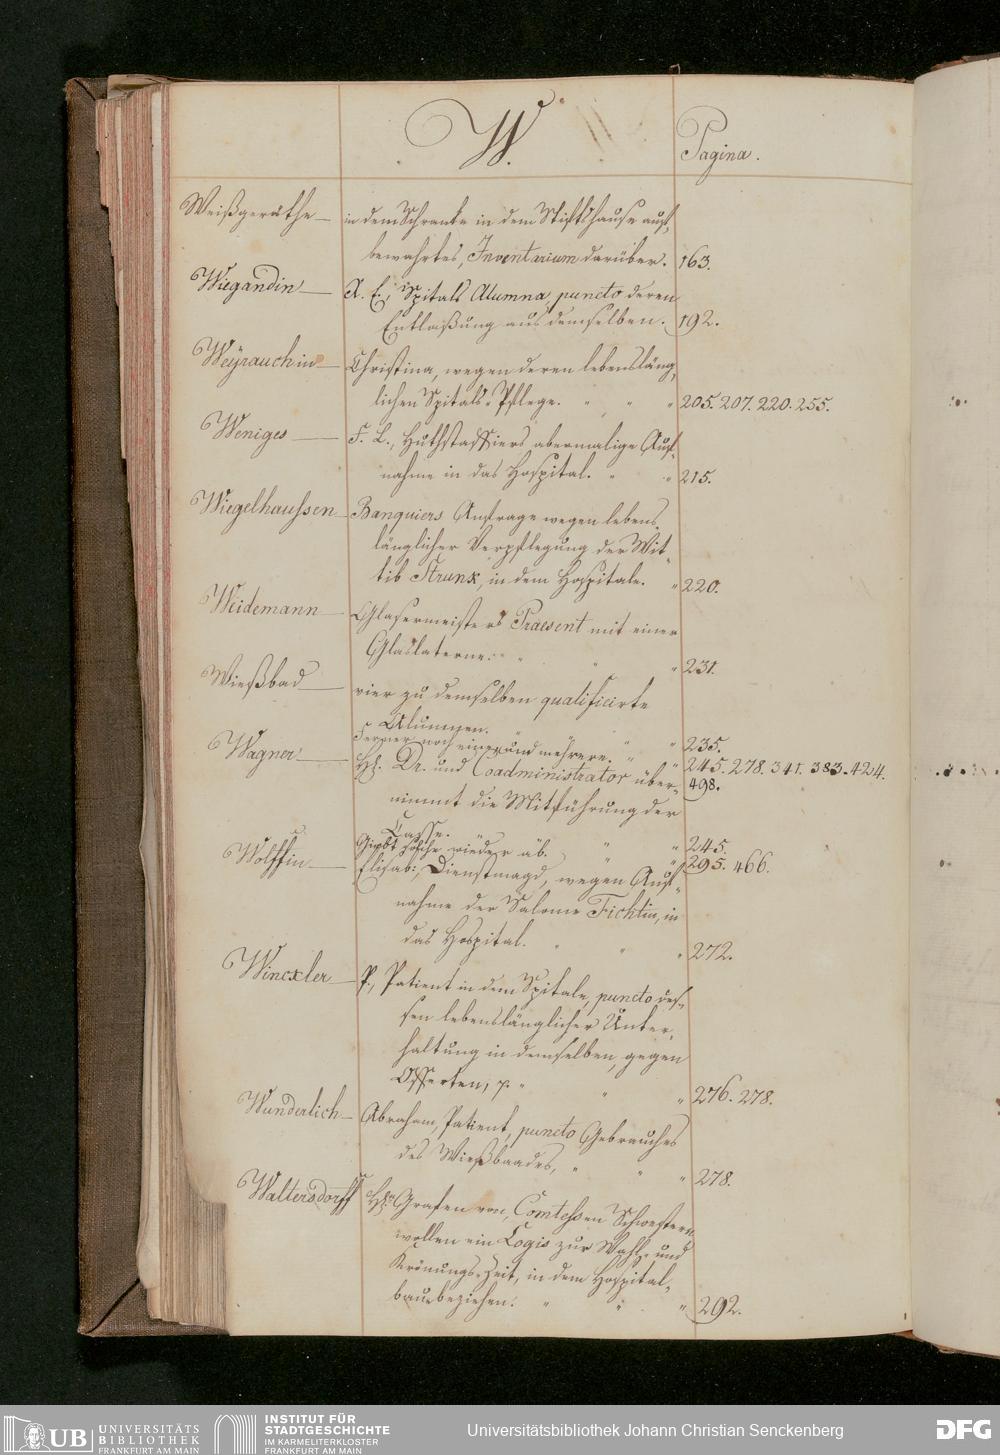 W.
Pagina.
Weißgeräthe — in dem Schranke in dem Stiftshause auf-
bewahrtes, Inventarium darüber. 163.
Wiegandin — A. E., Spitals Alumna, puncto deren
Entlaßung aus demselben. 192.
Weÿrauchin — Christina, wegen deren lebensläng-
lichen Spitals-Pflege. " " " 205. 207. 220. 255.
Weniges — F. L., Huthstaffiers abermalige Auf-
nahme in das Hospital. " " 215.
Wiegelhaussen — Banquiers Anfrage wegen lebens-
länglicher Verpflegung der Wit-
tib Strunk, in dem Hospitale. " 220.
Weidemann — Glasermeisters Praesent mit einer
Glaslaterne. " " " 231.
Wießbad — vier zu demselben qualificirte
Alumnen. " " " 235.
Ferner noch einer und mehrere. " " 245. 278. 341. 383. 424.
498.
Wagner — Hr. Dr. und Coadministrator über-
nimmt die Mitführung der
Casse. " " 245.
Giebt solche wieder ab. " " 295. 466.
Wolffin — Elisab:, Dienstmagd, wegen Auf-
nahme der Salome Fichtin, in
das Hospital. " " " 272.
Winckler — P., Patient in dem Spitale, puncto des-
sen lebenslänglicher Unter-
haltung in demselben, gegen
Offerten, p. " " " 276. 278.
Wunderlich — Abraham, Patient, puncto Gebrauches
des Wießbaades, " " " 278.
Waltersdorff Hrn. Grafen von, Comtessen Schwestern
wollen ein Logis zur Wahl- und
Krönungs-Zeit, in dem Hospital-
bau beziehen. " " " 292.
UB UNIVERSITÄTS
BIBLIOTHEK
FRANKFURT AM MAIN
INSTITUT FÜR
STADTGESCHICHTE
IM KARMELITERKLOSTER
FRANKFURT AM MAIN
Universitätsbibliothek Johann Christian Senckenberg
DFG